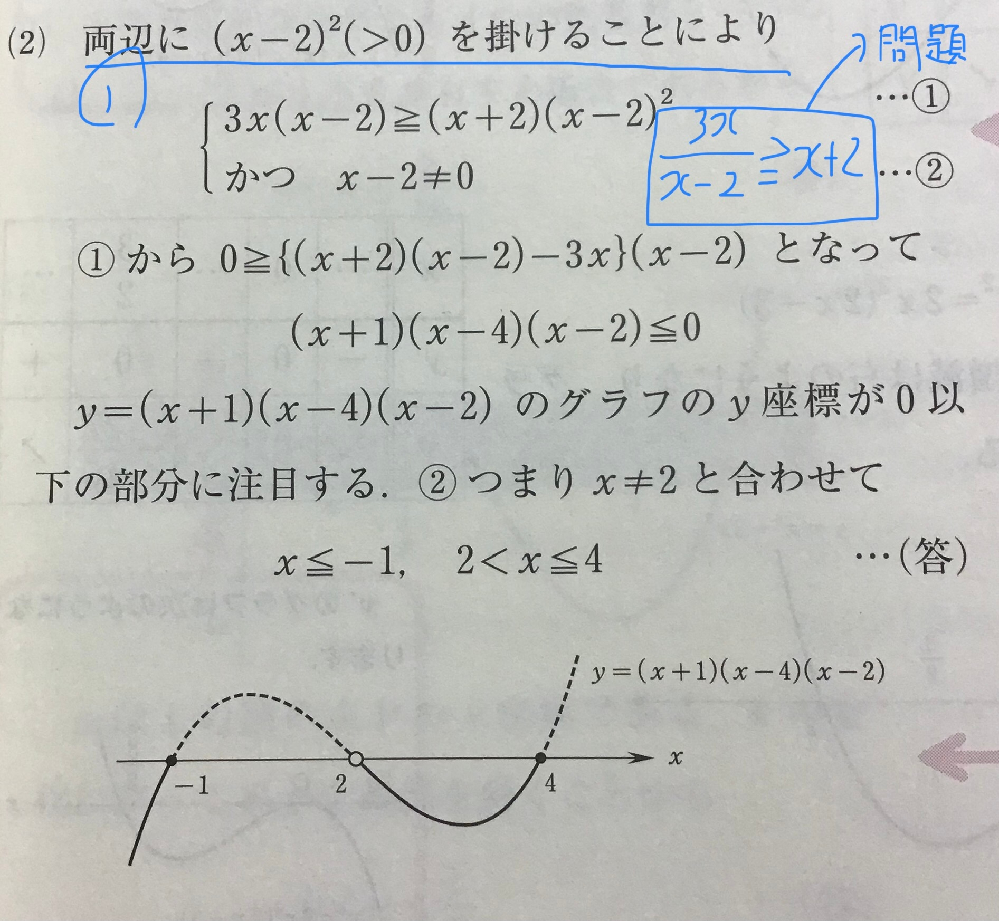 (2) 両辺に (x-2)²(>0) を掛けることにより
1
問題
3x(x-2)≧(x+2)(x-2)² …①
かつ x-2≠0 …②
3x/(x-2) ≧ x+2
①から 0≧{(x+2)(x-2)-3x}(x-2) となって
(x+1)(x-4)(x-2)≦0
y=(x+1)(x-4)(x-2) のグラフの y 座標が 0 以
下の部分に注目する. ②つまり x≠2 と合わせて
x≦-1, 2<x≦4 …(答)
y=(x+1)(x-4)(x-2)
x
-1 2 4